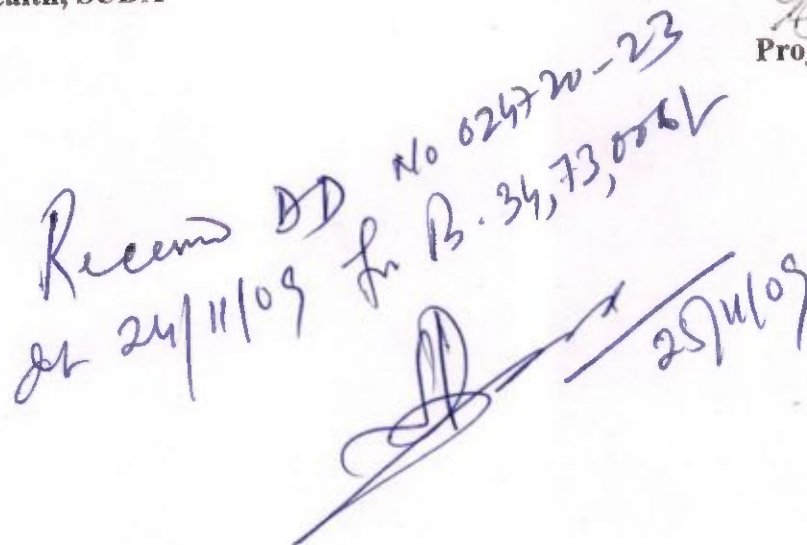 SUDA
Received DD No 024720-23
dt 24/11/09 for Rs. 34,73,006/-
25/11/09